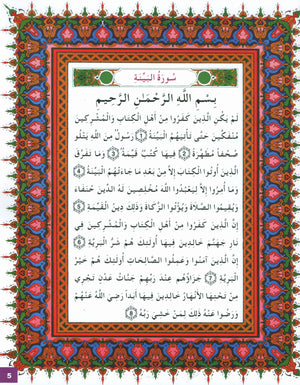 سُورَةُ البَيِّنَةِ
بِسْمِ اللَّهِ الرَّحْمَـٰنِ الرَّحِيمِ
لَمْ يَكُنِ الَّذِينَ كَفَرُوا مِنْ أَهْلِ الْكِتَابِ وَالْمُشْرِكِينَ
مُنفَكِّينَ حَتَّى تَأْتِيَهُمُ الْبَيِّنَةُ ١ رَسُولٌ مِّنَ اللَّهِ يَتْلُو
صُحُفًا مُّطَهَّرَةً ٢ فِيهَا كُتُبٌ قَيِّمَةٌ ٣ وَمَا تَفَرَّقَ
الَّذِينَ أُوتُوا الْكِتَابَ إِلَّا مِنْ بَعْدِ مَا جَاءَتْهُمُ الْبَيِّنَةُ ٤
وَمَا أُمِرُوا إِلَّا لِيَعْبُدُوا اللَّهَ مُخْلِصِينَ لَهُ الدِّينَ حُنَفَاءَ
وَيُقِيمُوا الصَّلَاةَ وَيُؤْتُوا الزَّكَاةَ وَذَلِكَ دِينُ الْقَيِّمَةِ ٥
إِنَّ الَّذِينَ كَفَرُوا مِنْ أَهْلِ الْكِتَابِ وَالْمُشْرِكِينَ فِي
نَارِ جَهَنَّمَ خَالِدِينَ فِيهَا أُولَئِكَ هُمْ شَرُّ الْبَرِيَّةِ ٦
إِنَّ الَّذِينَ آمَنُوا وَعَمِلُوا الصَّالِحَاتِ أُولَئِكَ هُمْ خَيْرُ
الْبَرِيَّةِ ٧ جَزَاؤُهُمْ عِنْدَ رَبِّهِمْ جَنَّاتُ عَدْنٍ تَجْرِي
مِنْ تَحْتِهَا الْأَنْهَارُ خَالِدِينَ فِيهَا أَبَدًا رَضِيَ اللَّهُ عَنْهُمْ
وَرَضُوا عَنْهُ ذَلِكَ لِمَنْ خَشِيَ رَبَّهُ ٨
5